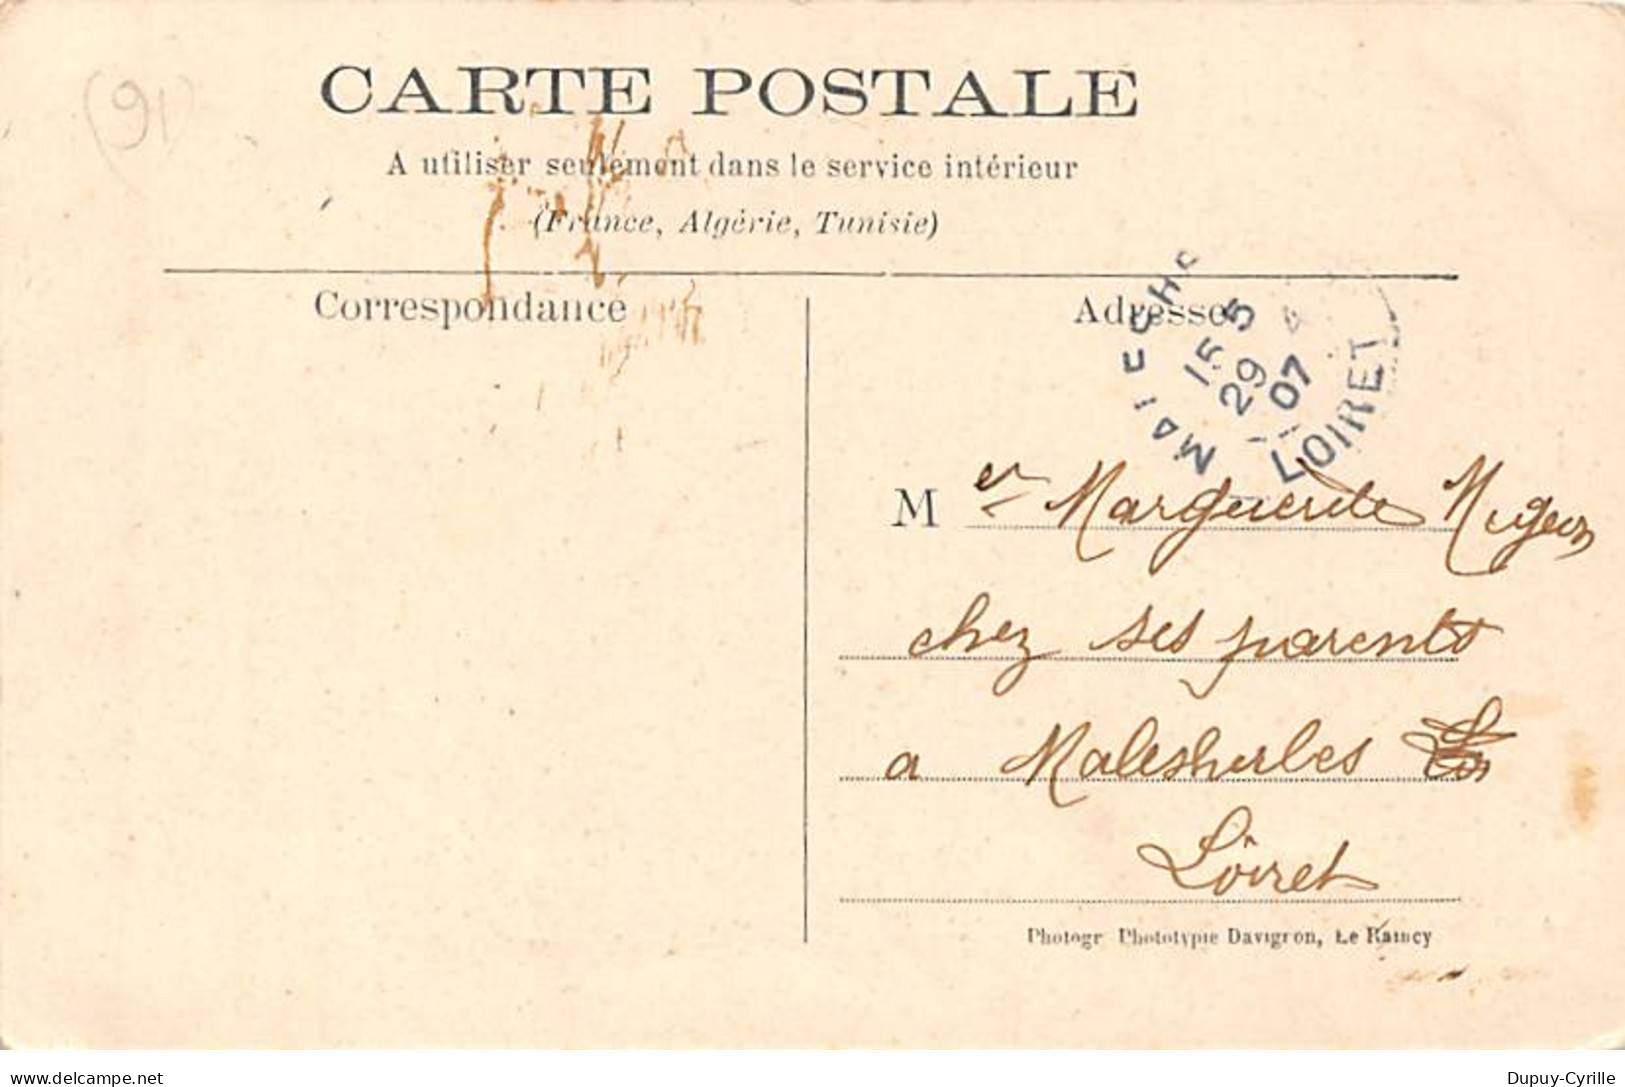 (91)
CARTE POSTALE
A utiliser seulement dans le service intérieur
(France, Algérie, Tunisie)
Correspondance
Adresse
15 5
29
07
LOIRET
M elle Marguerite Migeon
chez ses parents
a Malesherbes
Loiret
Photogr Phototypie Davigron, Le Raincy
delcampe.net
Dupuy-Cyrille